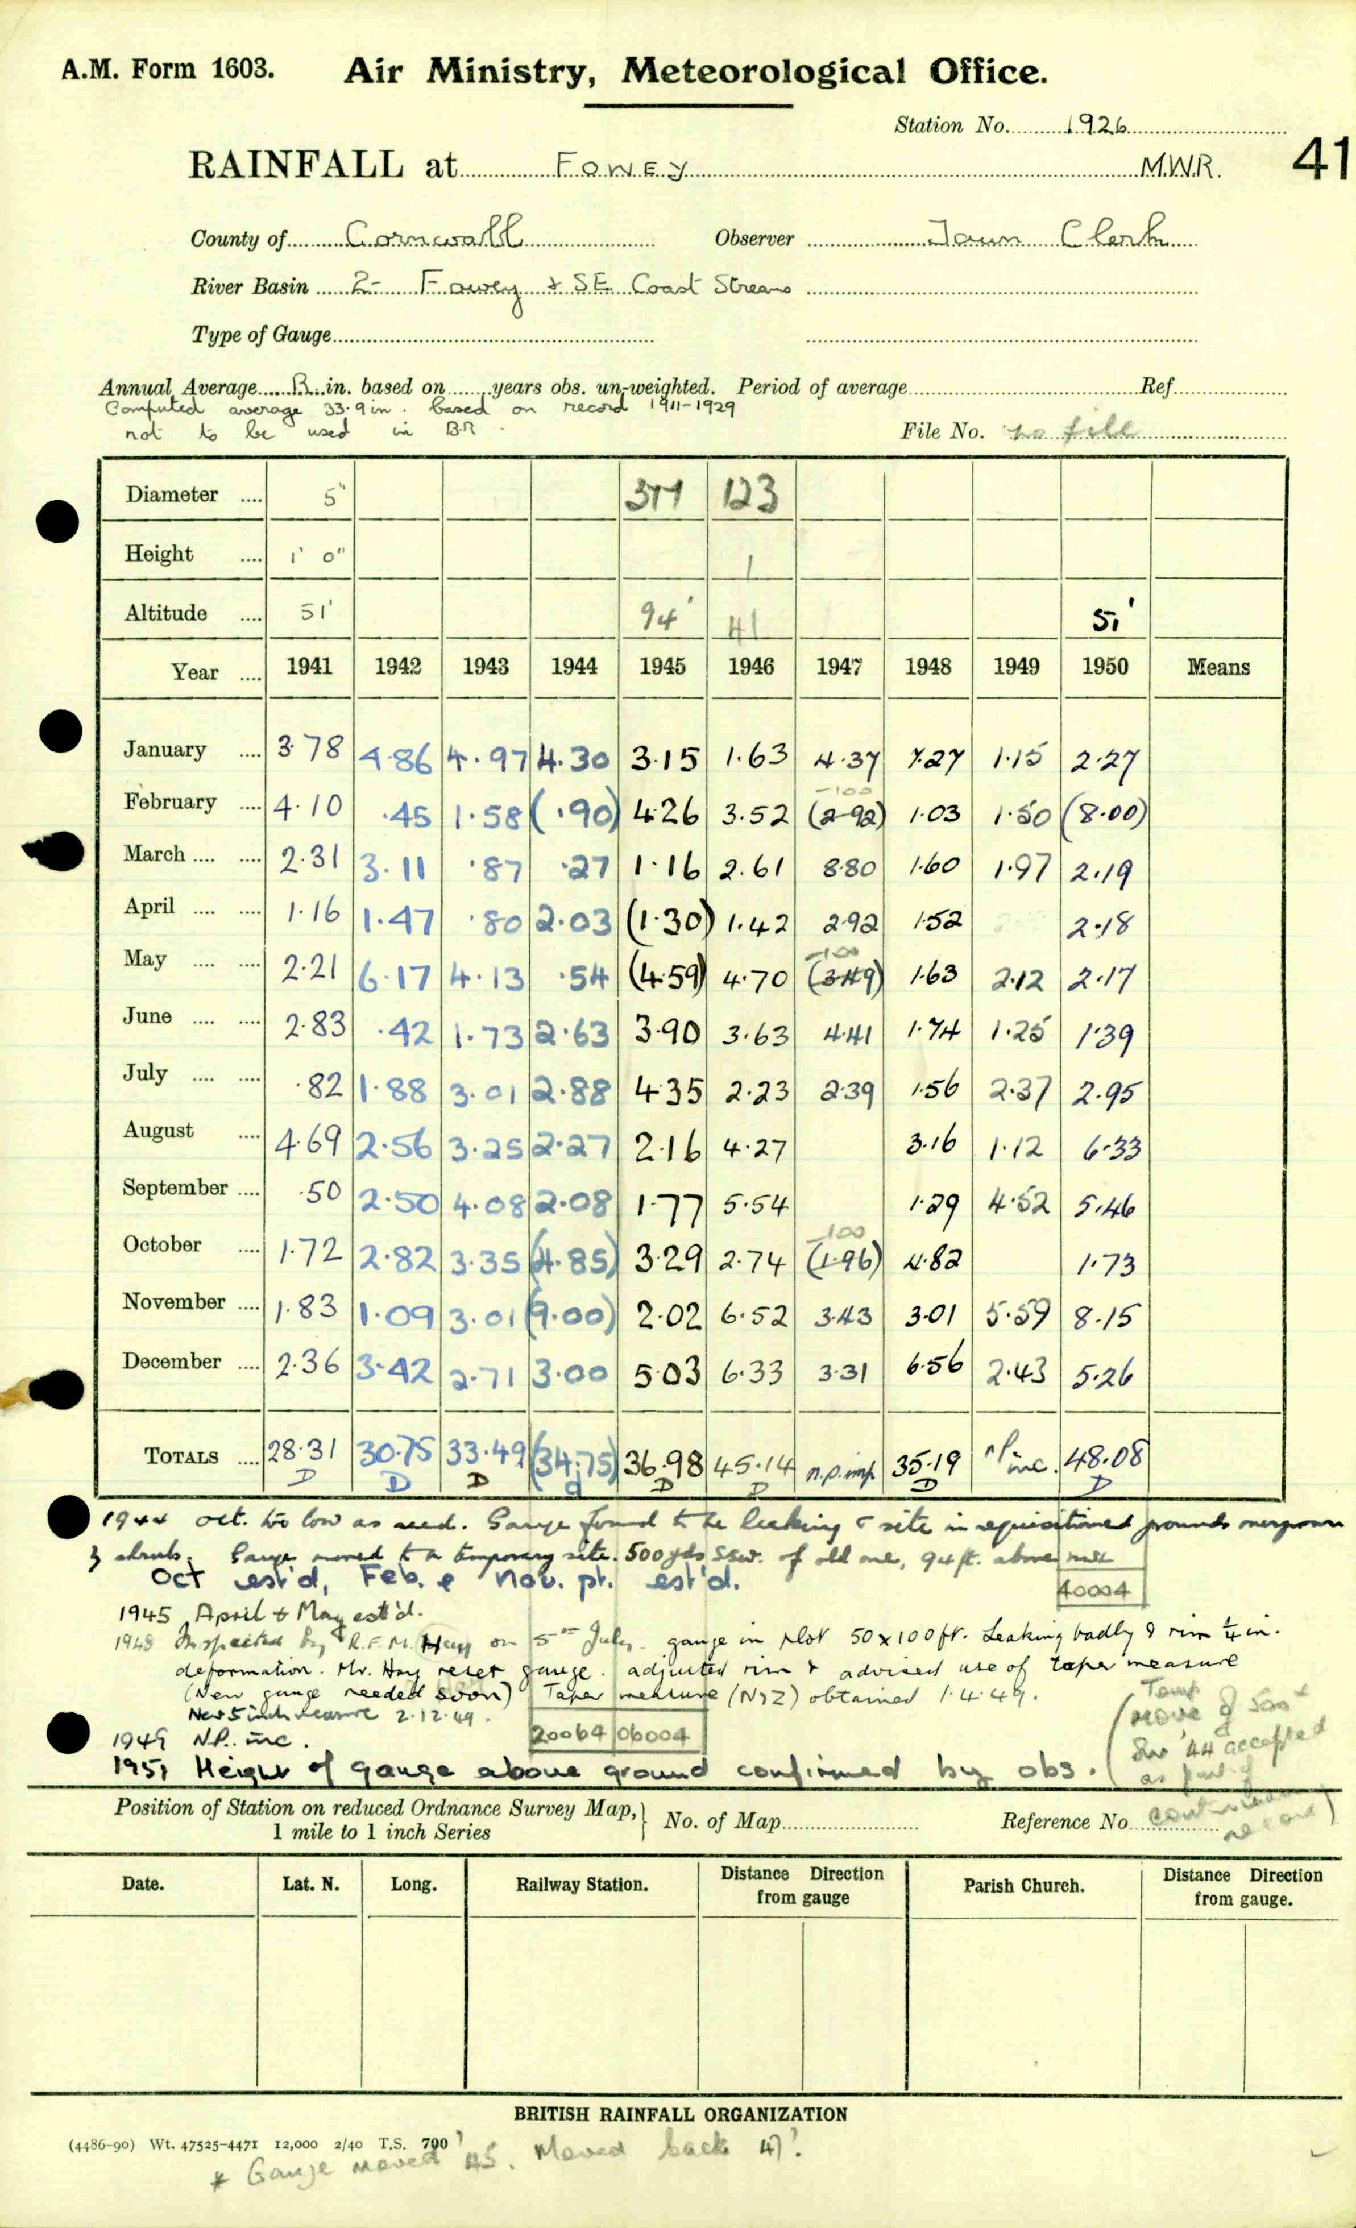 A.M. Form 1603. Air Ministry, Meteorological Office.
Station No. 1926
RAINFALL at FOWEY M.W.R. 41
County of Cornwall Observer Town Clerk
River Basin 2- Fowey & SE Coast Streams
Type of Gauge
Annual Average R in. based on years obs. un-weighted. Period of average Ref
Computed average 33.9 in. based on record 1911-1929
not to be used in BR.
File No. no file
Diameter .... 5" 123
Height .... 1' 0" 1
Altitude .... 51' 94' 41 51'
Year .... 1941 1942 1943 1944 1945 1946 1947 1948 1949 1950 Means
January .... 3.78 4.86 4.97 4.30 3.15 1.63 4.37 7.27 1.15 2.27
-100
February .... 4.10 .45 1.58 (.90) 4.26 3.52 (2.92) 1.03 1.50 (8.00)
March .... .... 2.31 3.11 .87 .27 1.16 2.61 8.80 1.60 1.97 2.19
April .... .... 1.16 1.47 .80 2.03 (1.30) 1.42 2.92 1.52 2.18
-100
May .... .... 2.21 6.17 4.13 .54 (4.59) 4.70 (3.49) 1.63 2.12 2.17
June .... .... 2.83 .42 1.73 2.63 3.90 3.63 4.41 1.74 1.25 1.39
July .... .... .82 1.88 3.01 2.88 4.35 2.23 2.39 1.56 2.37 2.95
August .... 4.69 2.56 3.25 2.27 2.16 4.27 3.16 1.12 6.33
September .... .50 2.50 4.08 2.08 1.77 5.54 1.29 4.52 5.46
-100
October .... 1.72 2.82 3.35 (4.85) 3.29 2.74 (1.96) 4.82 1.73
November .... 1.83 1.09 3.01 (9.00) 2.02 6.52 3.43 3.01 5.59 8.15
December .... 2.36 3.42 2.71 3.00 5.03 6.33 3.31 6.56 2.43 5.26
TOTALS .... 28.31 30.75 33.49 (34.75) 36.98 45.14 n.p. imp. 35.19 nP inc. 48.08
D D D d D D D D
1944 Oct. too low as read. Gauge found to be leaking & site in requisitioned grounds overgrown
by shrubs. Gauge moved to a temporary site. 500 yds SSW. of old one, 94 ft. above msl
Oct est'd, Feb. & Nov. pt. est'd.
40004
1945 April & May est'd.
1948 Inspected by R.F.M. Hay on 5th July. gauge in plot 50 x 100 ft. Leaking badly & rim 1/4 in.
deformation. Mr. Hay reset gauge. adjusted rim & advised use of taper measure
(New gauge needed soon) Taper measure (NIZ) obtained 1.4.49.
New 5 inch measure 2.12.49.
20064 06004
1949 N.P. inc.
1951 Height of gauge above ground confirmed by obs.
(Temp move of 500x
SW '44 accepted
as part of
continuous
record)
Position of Station on reduced Ordnance Survey Map, } No. of Map Reference No
1 mile to 1 inch Series
Date. Lat. N. Long. Railway Station. Distance Direction from gauge Parish Church. Distance Direction from gauge.
BRITISH RAINFALL ORGANIZATION
(4486-90) Wt. 47525-4471 12,000 2/40 T.S. 700
* Gauge moved '45. Moved back 47?